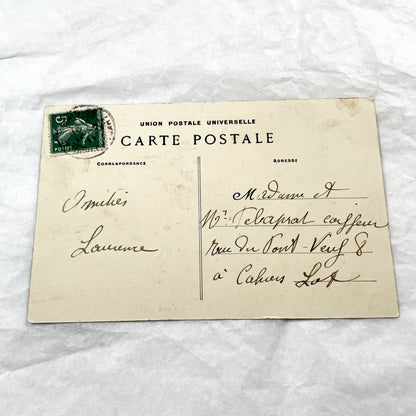 UNION POSTALE UNIVERSELLE
CARTE POSTALE
CORRESPONDANCE
ADRESSE
5c
POSTES
Amitiés
Laurence
Madame et
Mr Pebaprat coiffeur
rue du Pont-Neuf 8
à Cahors Lot